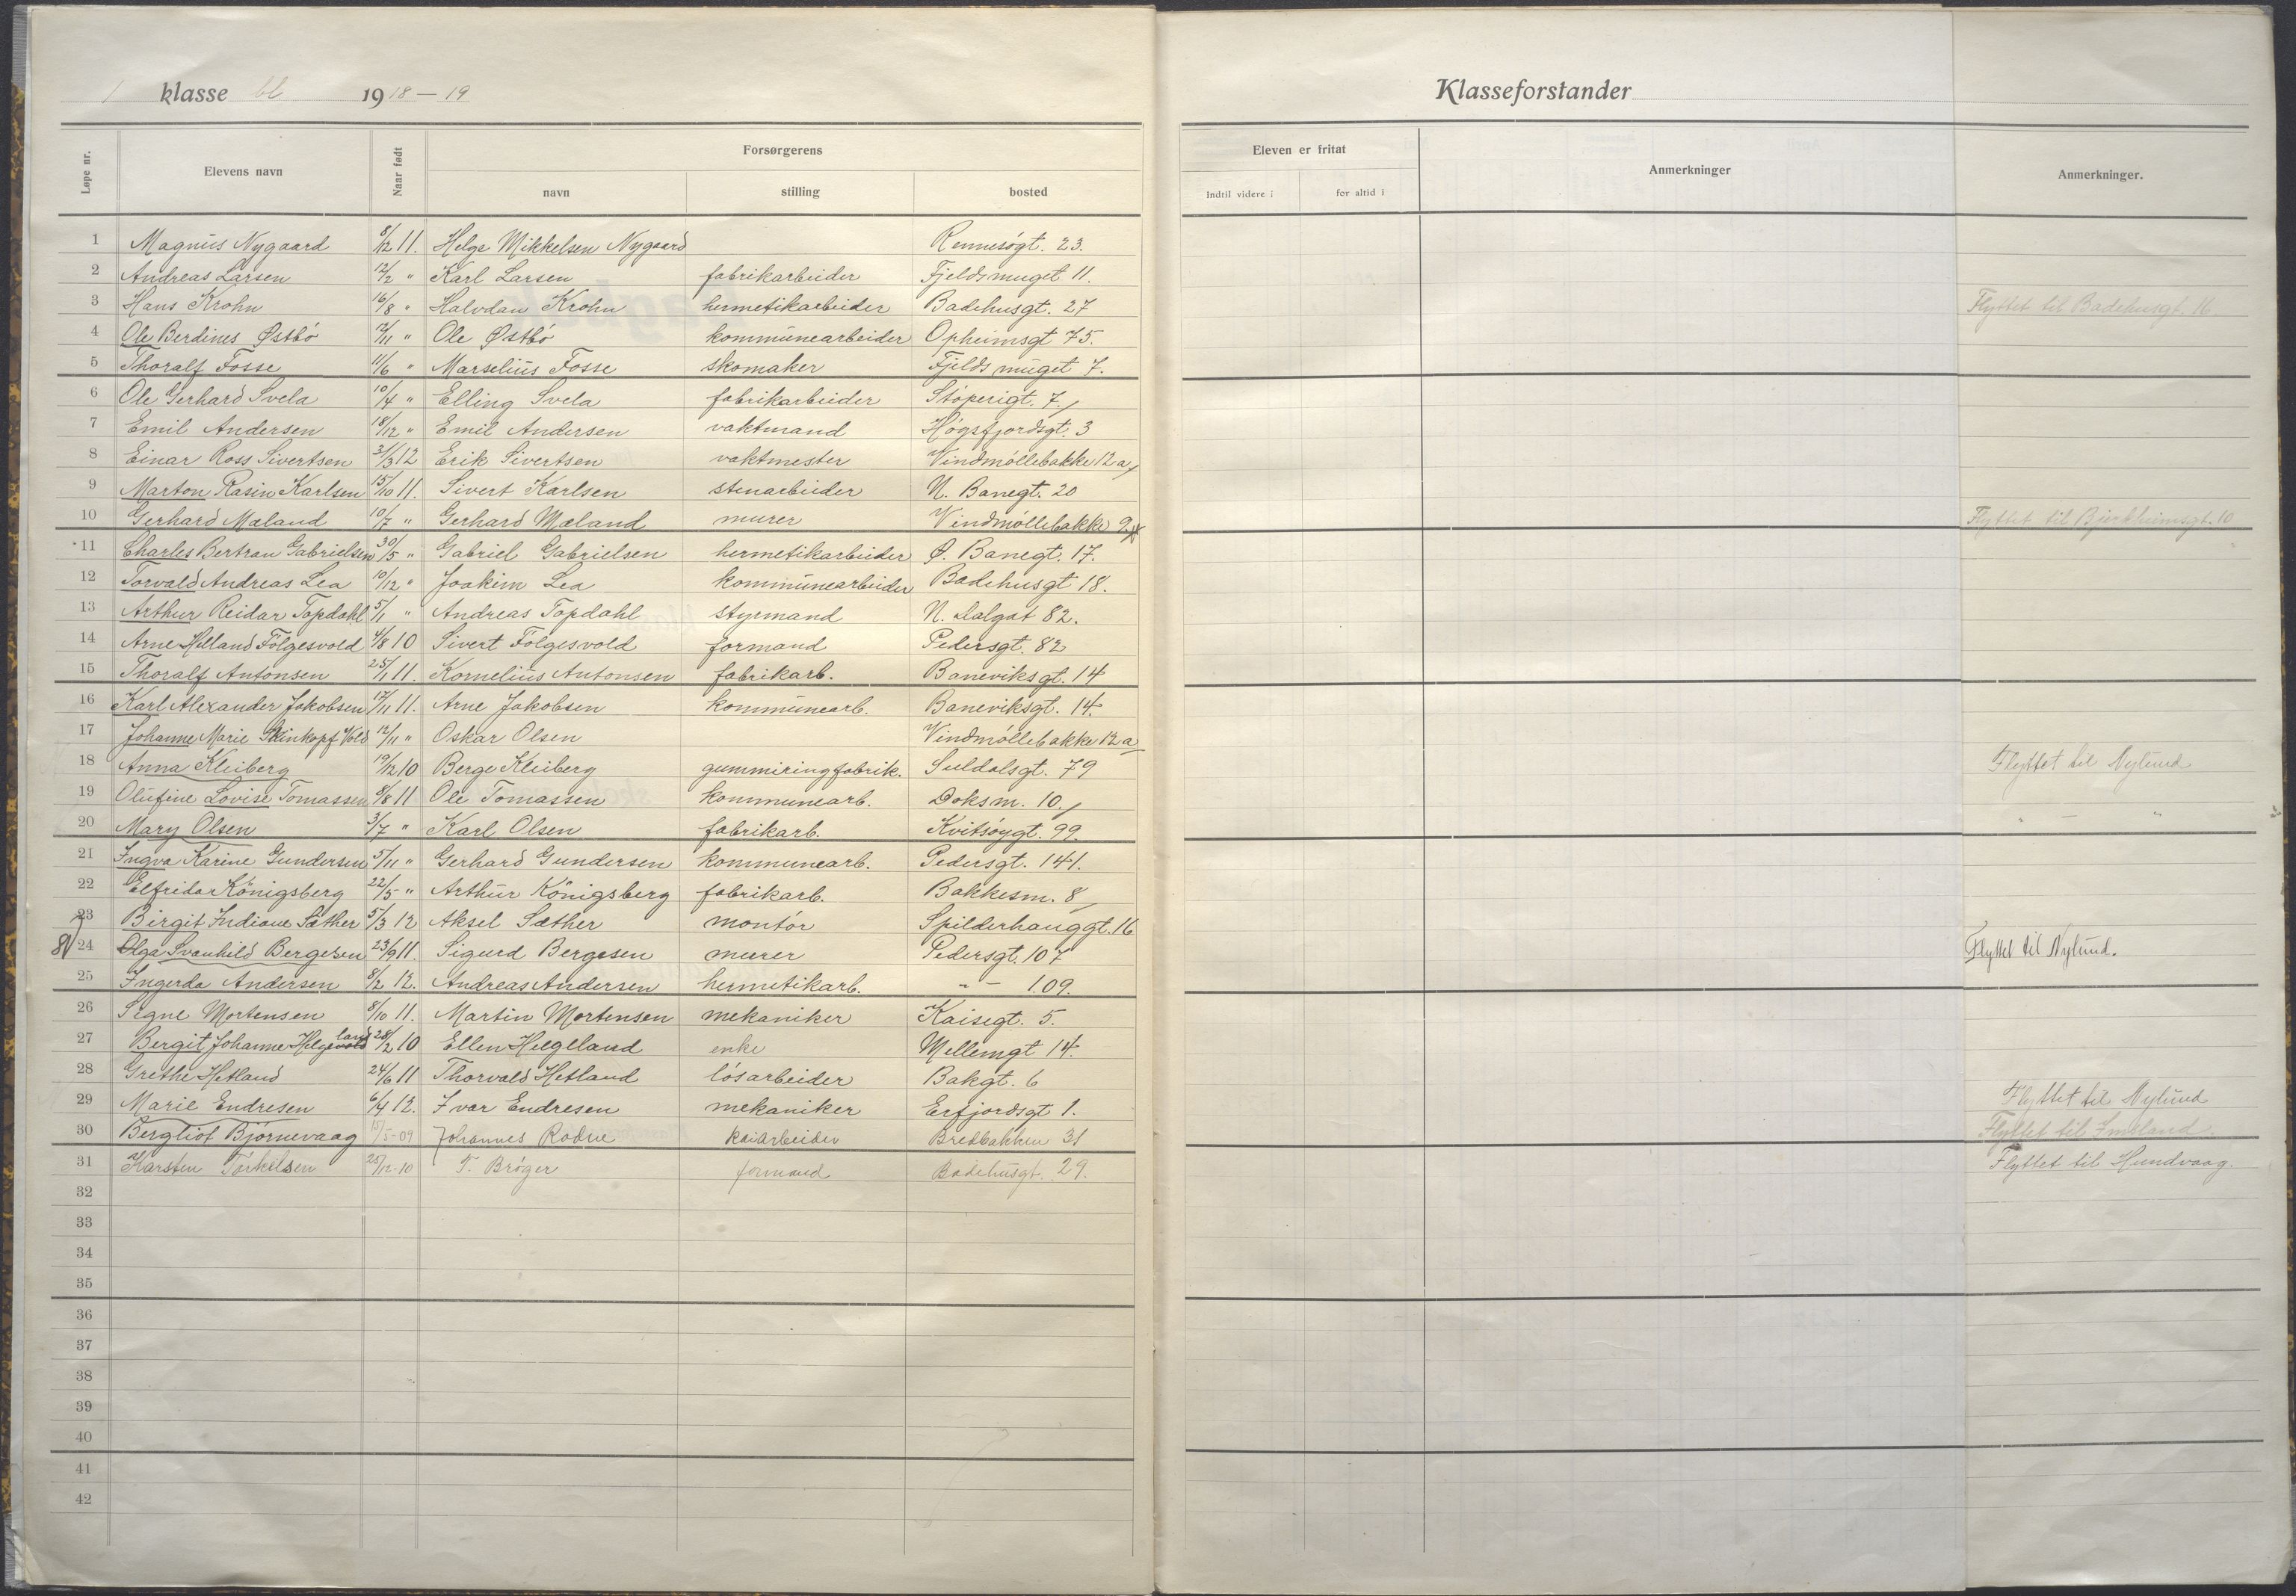 1 klasse bl. 1918-19 Klasseforstander
Løpe nr. Elevens navn Naar født Forsørgerens Eleven er fritat Anmerkninger Anmerkninger.
navn stilling bosted Indtil videre i for altid i
1 Magnus Nygaard 8/12 11. Helge Mikkelsen Nygaard Rennesøgt. 23.
2 Andreas Larsen 12/2 " Karl Larsen fabrikarbeider Fjeldsmuget 11.
3 Hans Krohn 16/8 " Halvdan Krohn hermetikarbeider Badehusgt. 27 Flyttet til Badehusgt. 16
4 Ole Berdines Østbó 12/11 " Ole Østbó kommunearbeider Opheimsgt 75.
5 Thoralf Fosse 11/6 " Marselius Fosse skomaker Fjelds muget 7.
6 Ole Gerhard Svela 10/4 " Elling Svela fabrikarbeider Stóperigt. 7.
7 Emil Andersen 18/12 " Emil Andersen vaktmand Høgsfjordsgt. 3
8 Einar Ross Sivertsen 31/3 12 Erik Sivertsen vaktmester Vindmøllebakke 12a
9 Marton Rasin Karlsen 15/10 11. Sivert Karlsen stenarbeider N. Banegt. 20
10 Gerhard Mæland 10/7 " Gerhard Mæland murer Vindmøllebakke 9 Flyttet til Bjerkheimsgt. 10
11 Charles Bertran Gabrielsen 30/5 " Gabriel Gabrielsen hermetikarbeider Ø. Banegt. 17.
12 Torvald Andreas Lea 10/12 " Joakim Lea kommunearbeider Badehusgt 18.
13 Arthur Reidar Topdahl 5/1 " Andreas Topdahl styrmand N. Dalgat 82.
14 Arne Helland Fólgesvold 4/8 10 Sivert Fólgesvold formand Pedersgt. 82
15 Thoralf Antonsen 25/1 11. Kornelius Antonsen fabrikarb. Baneviksgt. 14
16 Karl Alexander Jakobsen 17/11 11. Arne Jakobsen kommunearb. Baneviksgt. 14.
17 Johanne Marie Vold 12/11 " Oskar Olsen Vindmøllebakke 12a
18 Anna Kleiberg 19/12 10 Berge Kleiberg gummiringfabrik. Suldalsgt. 79 Flyttet til Nylund
19 Olufine Lovise Tomassen 8/8 11 Ole Tomassen kommunearb. Doksm. 10.
20 Mary Olsen 3/7 " Karl Olsen fabrikarb. Kvitsóygt. 99. " — "
21 Ingva Karine Gundersen 5/11 " Gerhard Gundersen kommunearb. Pedersgt. 141.
22 Elfrida Königsberg 22/5 " Arthur Königsberg fabrikarb. Bakkesm. 8
23 Birgit Indiane Sæther 5/3 12 Aksel Sæther montór Spilderhauggt. 16
24 Olga Svanhild Bergesen 23/9 11. Sigurd Bergesen murer Pedersgt. 107 Flyttet til Nylund.
25 Ingerda Andersen 8/2 12. Andreas Andersen hermetikarb. " - 109.
26 Signe Mortensen 8/10 11. Martin Mortensen mekaniker Kaisegt. 5.
27 Bergit Johanne Helgeland 28/2 10 Ellen Helgeland enke Mellemgt 14.
28 Grethe Hetland 24/6 11 Thorvald Hetland lósarbeider Bakgt. 6
29 Marie Endresen 6/4 12. Ivar Endresen mekaniker Erfjordsgt 1. Flyttet til Nylund
30 Bergliot Bjørnevaag 15/5-09 Johannes Rodne kaiarbeider Bredbakken 31 Flyttet til Imsland.
31 Karsten Torkelsen 25/12-10 T. Bróger formand Badehusgt. 29. Flyttet til Hundvaag.
32
33
34
35
36
37
38
39
40
41
42